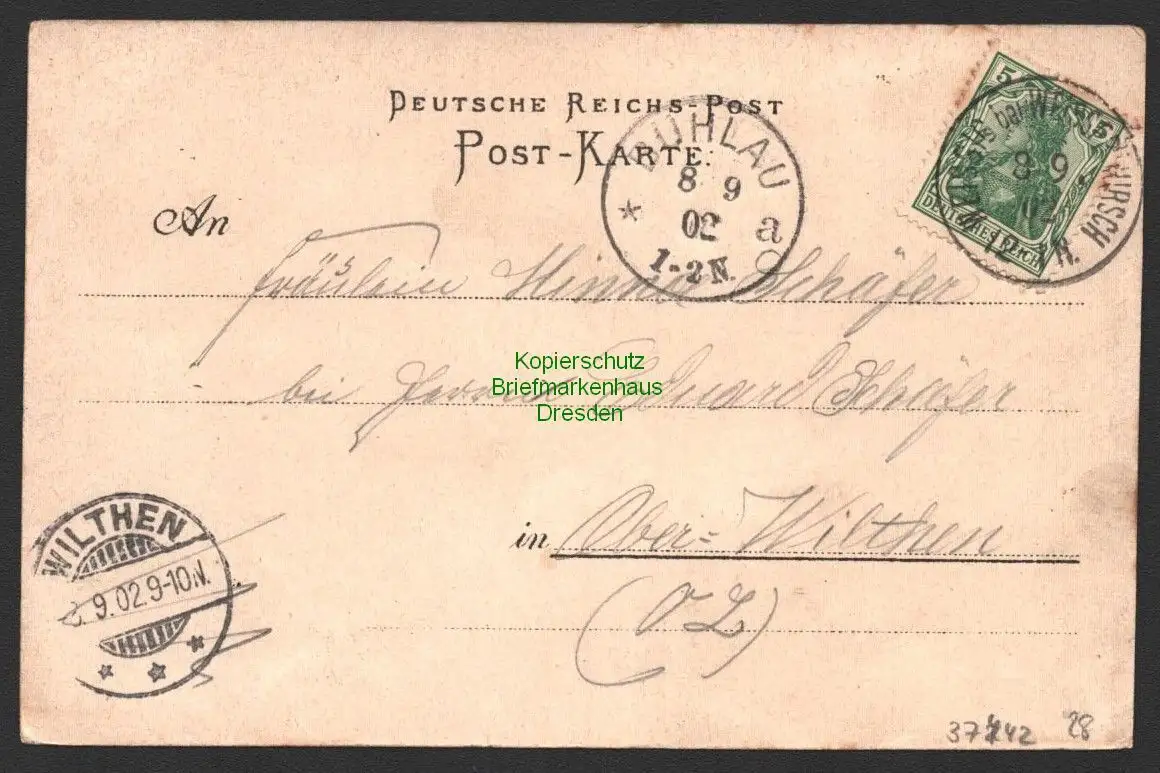 DEUTSCHE REICHS-POST
POST-KARTE.
BÜHLAU
8 9
02
1-2 N.
a
5 5
DEUTSCHES REICH
bei WEISSER HIRSCH
8 9.
An
Fräulein Minna Schäfer
bei Herrn Eduard Schäfer
Kopierschutz
Briefmarkenhaus
Dresden
in Ober-Wilthen
(O L)
WILTHEN
9.02.9-10N.
28